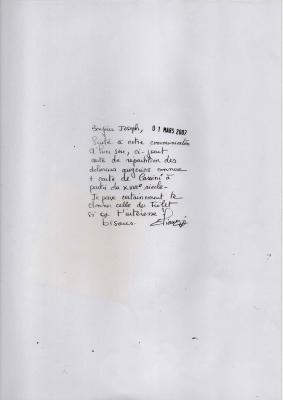 Bonjour Joseph, 01 MARS 2002
Suite à notre communication
d'hier soir, ci-joint
carte de répartition des
+ carte de Cassini à
partir du XVIIIe siècle
Je peux certainement te
donner celle du
si ça t'intéresse
bisous